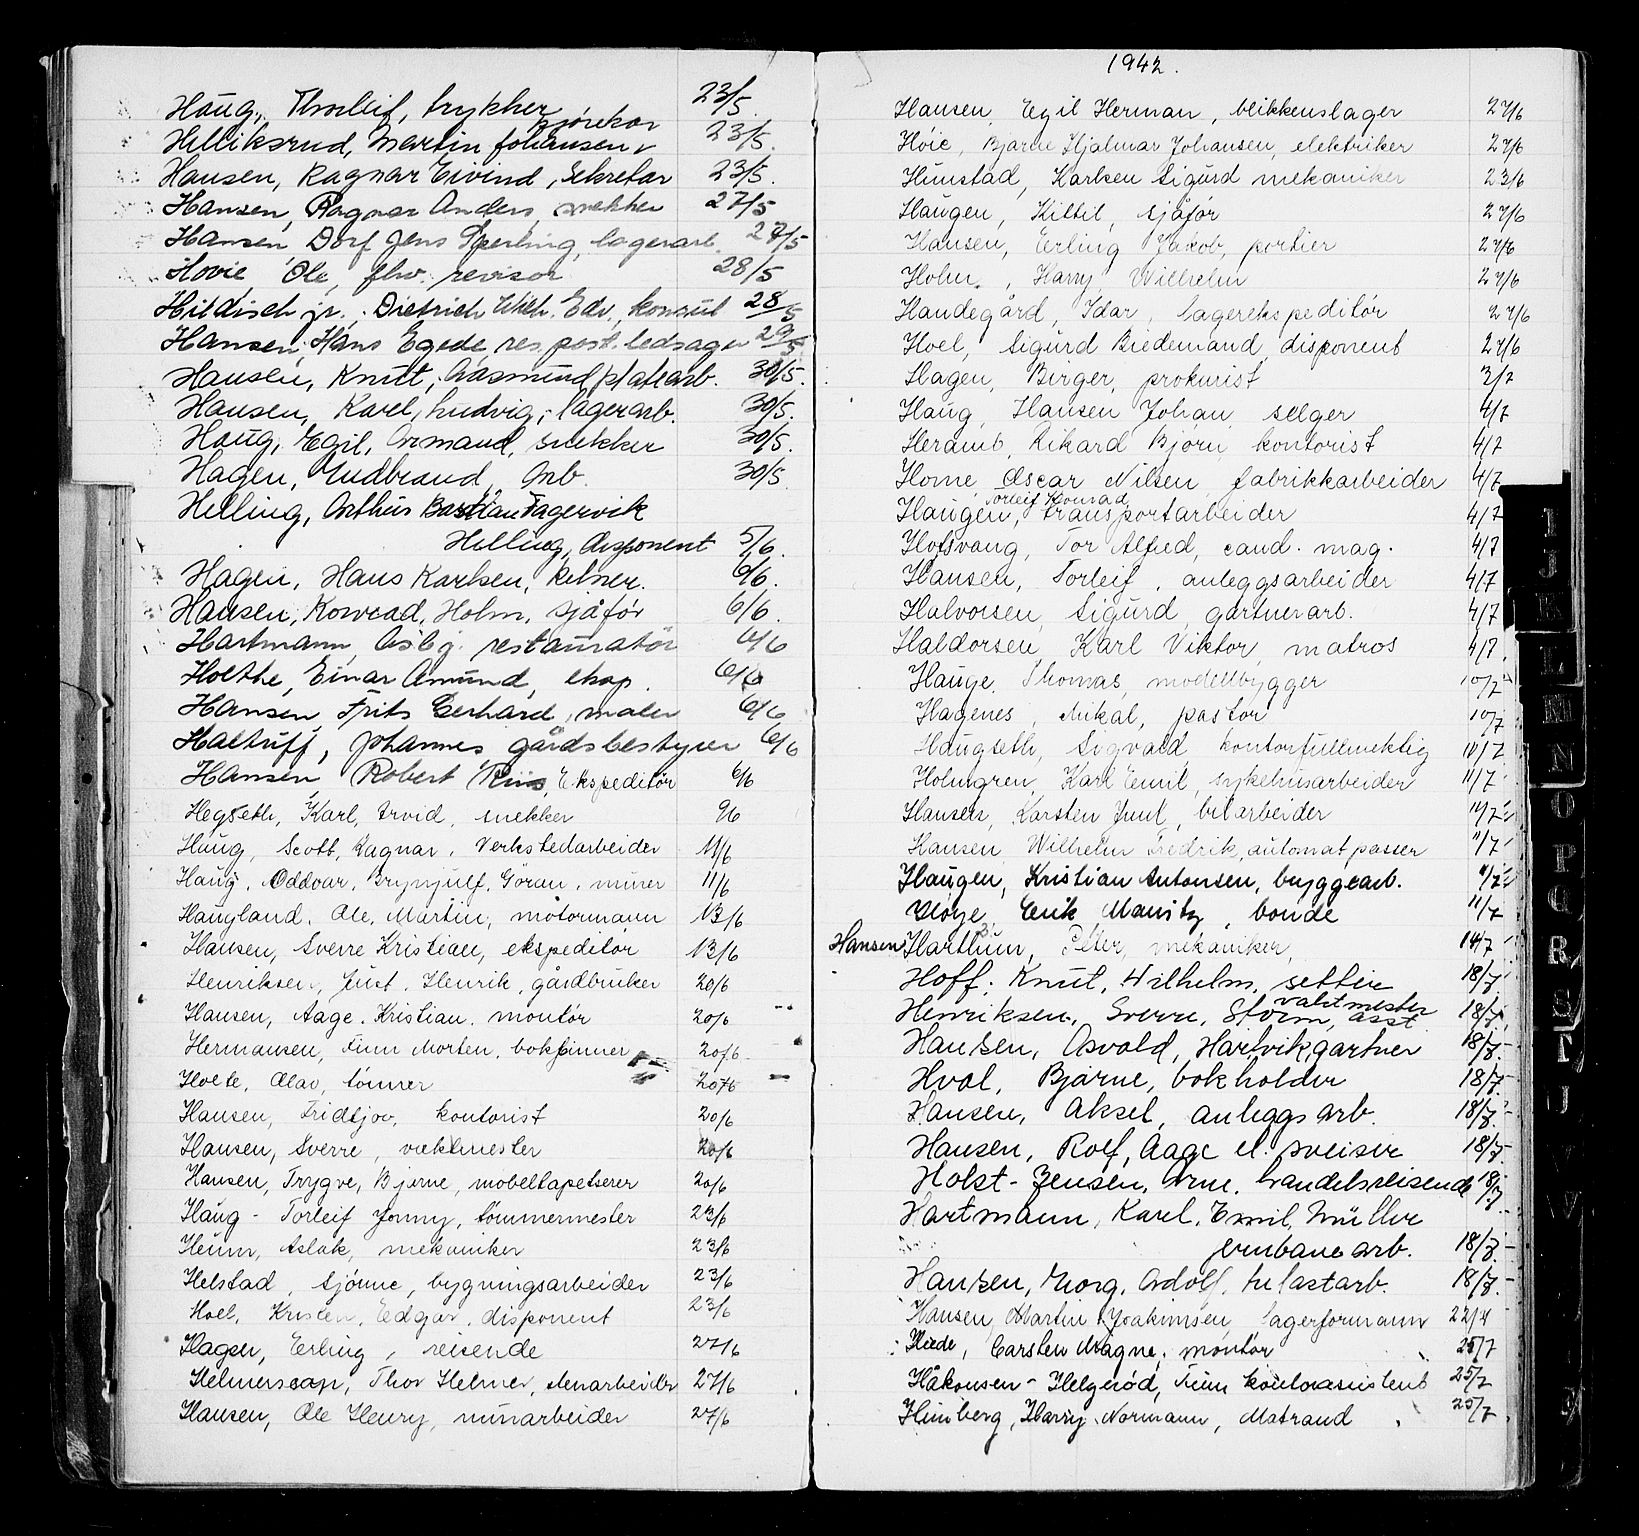 Haug, Thorleif, trykker 23/5
kjørekar
Helliksrud, Martin Johansen 23/5.
Hansen, Ragnar Eivind, Sekretær 23/5.
Hansen, Ragnar Anders snekker 27/5
Hansen Dorf Jens Sperling, lagerarb. 27/5
Hovie, Ole, fhv. revisor 28/5
Hildisch jr., Dietrich Wilh. Edv. konsul 28/5
Hansen, Hans Egede, res. post. ledsager 29/5
Hansen, Knut, Aasmund platearb. 30/5.
Hansen, Karel, Ludvig, lagerarb. 30/5.
Haug, Egil, Armand, snekker 30/5.
Hagen, Gudbrand, Arb. 30/5.
Helling, Arthur Bastian Fagervik
Helling, Disponent 5/6.
Hagen, Hans Karlsen, kelner. 6/6.
Hansen, Konrad, Holm, sjåfør 6/6.
Hartmann, Asbj. restauratør 6/6
Holthe, Einar Amund, eksp. 6/6
Hansen, Frits Gerhard, maler 6/6
Haltuff, Johannes gårdsbestyrer 6/6
Hansen, Robert Riis, Ekspeditør 6/6
Hegseth, Karl, Arvid, snekker 9/6
Haug, Scott, Ragnar, Verkstedarbeider 11/6
Haug, Oddvar, Brynjulf, Göran, murer 11/6
Haugland, Ole, Martin, motormann 13/6
Hansen, Sverre Kristian, ekspeditør 13/6
Henriksen, Just, Henrik, gårdbruker 20/6
Hansen, Aage, Kristian, montør 20/6
Hermansen, Finn Morten, bokbinner 20/6
Holte, Olav, tømmer 20/6
Hansen, Fridtjov, kontorist 20/6
Hansen, Sverre, vaktmester 20/6
Hansen, Trygve, Bjarne, møbeltapetserer 20/6
Haug - Torleif Jonny, tømmermester 23/6
Heum, Aslak, mekaniker 23/6
Helstad, Sjønne, bygningsarbeider 23/6
Hoel, Kristen, Edgar, disponent 23/6
Hagen, Erling, reisende 27/6
Helmersen, Thor Helmer, stenarbeider 27/6
Hansen, Ole Henry, murarbeider 27/6
1942.
Hansen, Egil Herman, blikkenslager 27/6
Høie, Bjarne Hjalmar Johansen, elektriker 27/6
Hunstad, Karlsen Sigurd mekaniker 23/6
Haugen, Kittil, sjåfør 27/6
Hansen, Erling Jakob, portier 27/6
Holm, Harry Wilhelm 27/6
Handegård, Idar, lagerekspeditør 27/6
Hoel, Sigurd Biedemand, disponent 27/6
Hagen, Birger, prokurist 3/7
Haug Hansen Johan, selger 4/7
Heramb, Rikard Bjørn kontorist 4/7
Horne Oscar Nilsen fabrikkarbeider 4/7
Torleif Konrad
Haugen, transportarbeider 4/7
Hofsvang, Tor Alfred, cand. mag. 4/7
Hansen, Torleif, anleggsarbeider 4/7
Halvorsen, Sigurd gartnerarb. 4/7
Haldorsen Karl Viktor, matros 4/7.
Hauge, Thomas, modellbygger 10/7
Hagenes, Mikal, pastor 10/7
Haugseth, Sigvald, kontorfullmektig 11/7
Holmgren, Karl Emil, sykehusarbeider 11/7
Hansen, Karsten Juul, bilarbeider 11/7
Hansen Wilhelm Fredrik, automatpasser 11/7
Haugen, Kristian Antonsen, byggearb. 11/7
Høye, Erik Mauritz, bonde 11/7
Hansen Harthun, Peter, mekaniker, 14/7
Hoff, Knut, Wilhelm, setter 18/7
vaktmester
Henriksen, Sverre, Storm, asst. 18/7
Hansen, Osvald, Hartvik gartner 18/7.
Hval, Bjarne, bokholder 18/7
Hansen, Aksel, anleggsarb. 18/7.
Hansen, Rolf, Aage el. sveiser 18/7.
Holst-Jensen, Arne, handelsreisende 18/7.
Hartmann, Karl, Emil, Müller
ernbanearb. 18/7.
Hansen, Georg, Adolf, 18/7.
Hansen, Martin Joakimsen, lagerformann 22/7
Hiede, Carsten Magne, montør 25/7
Håkonsen - Helgerød, Finn kontorassistent 25/7
Himberg, Harry Normann, Matrand 25/7
I
J
K
L
M
N
O
P
Q
R
S
T
U
V
W